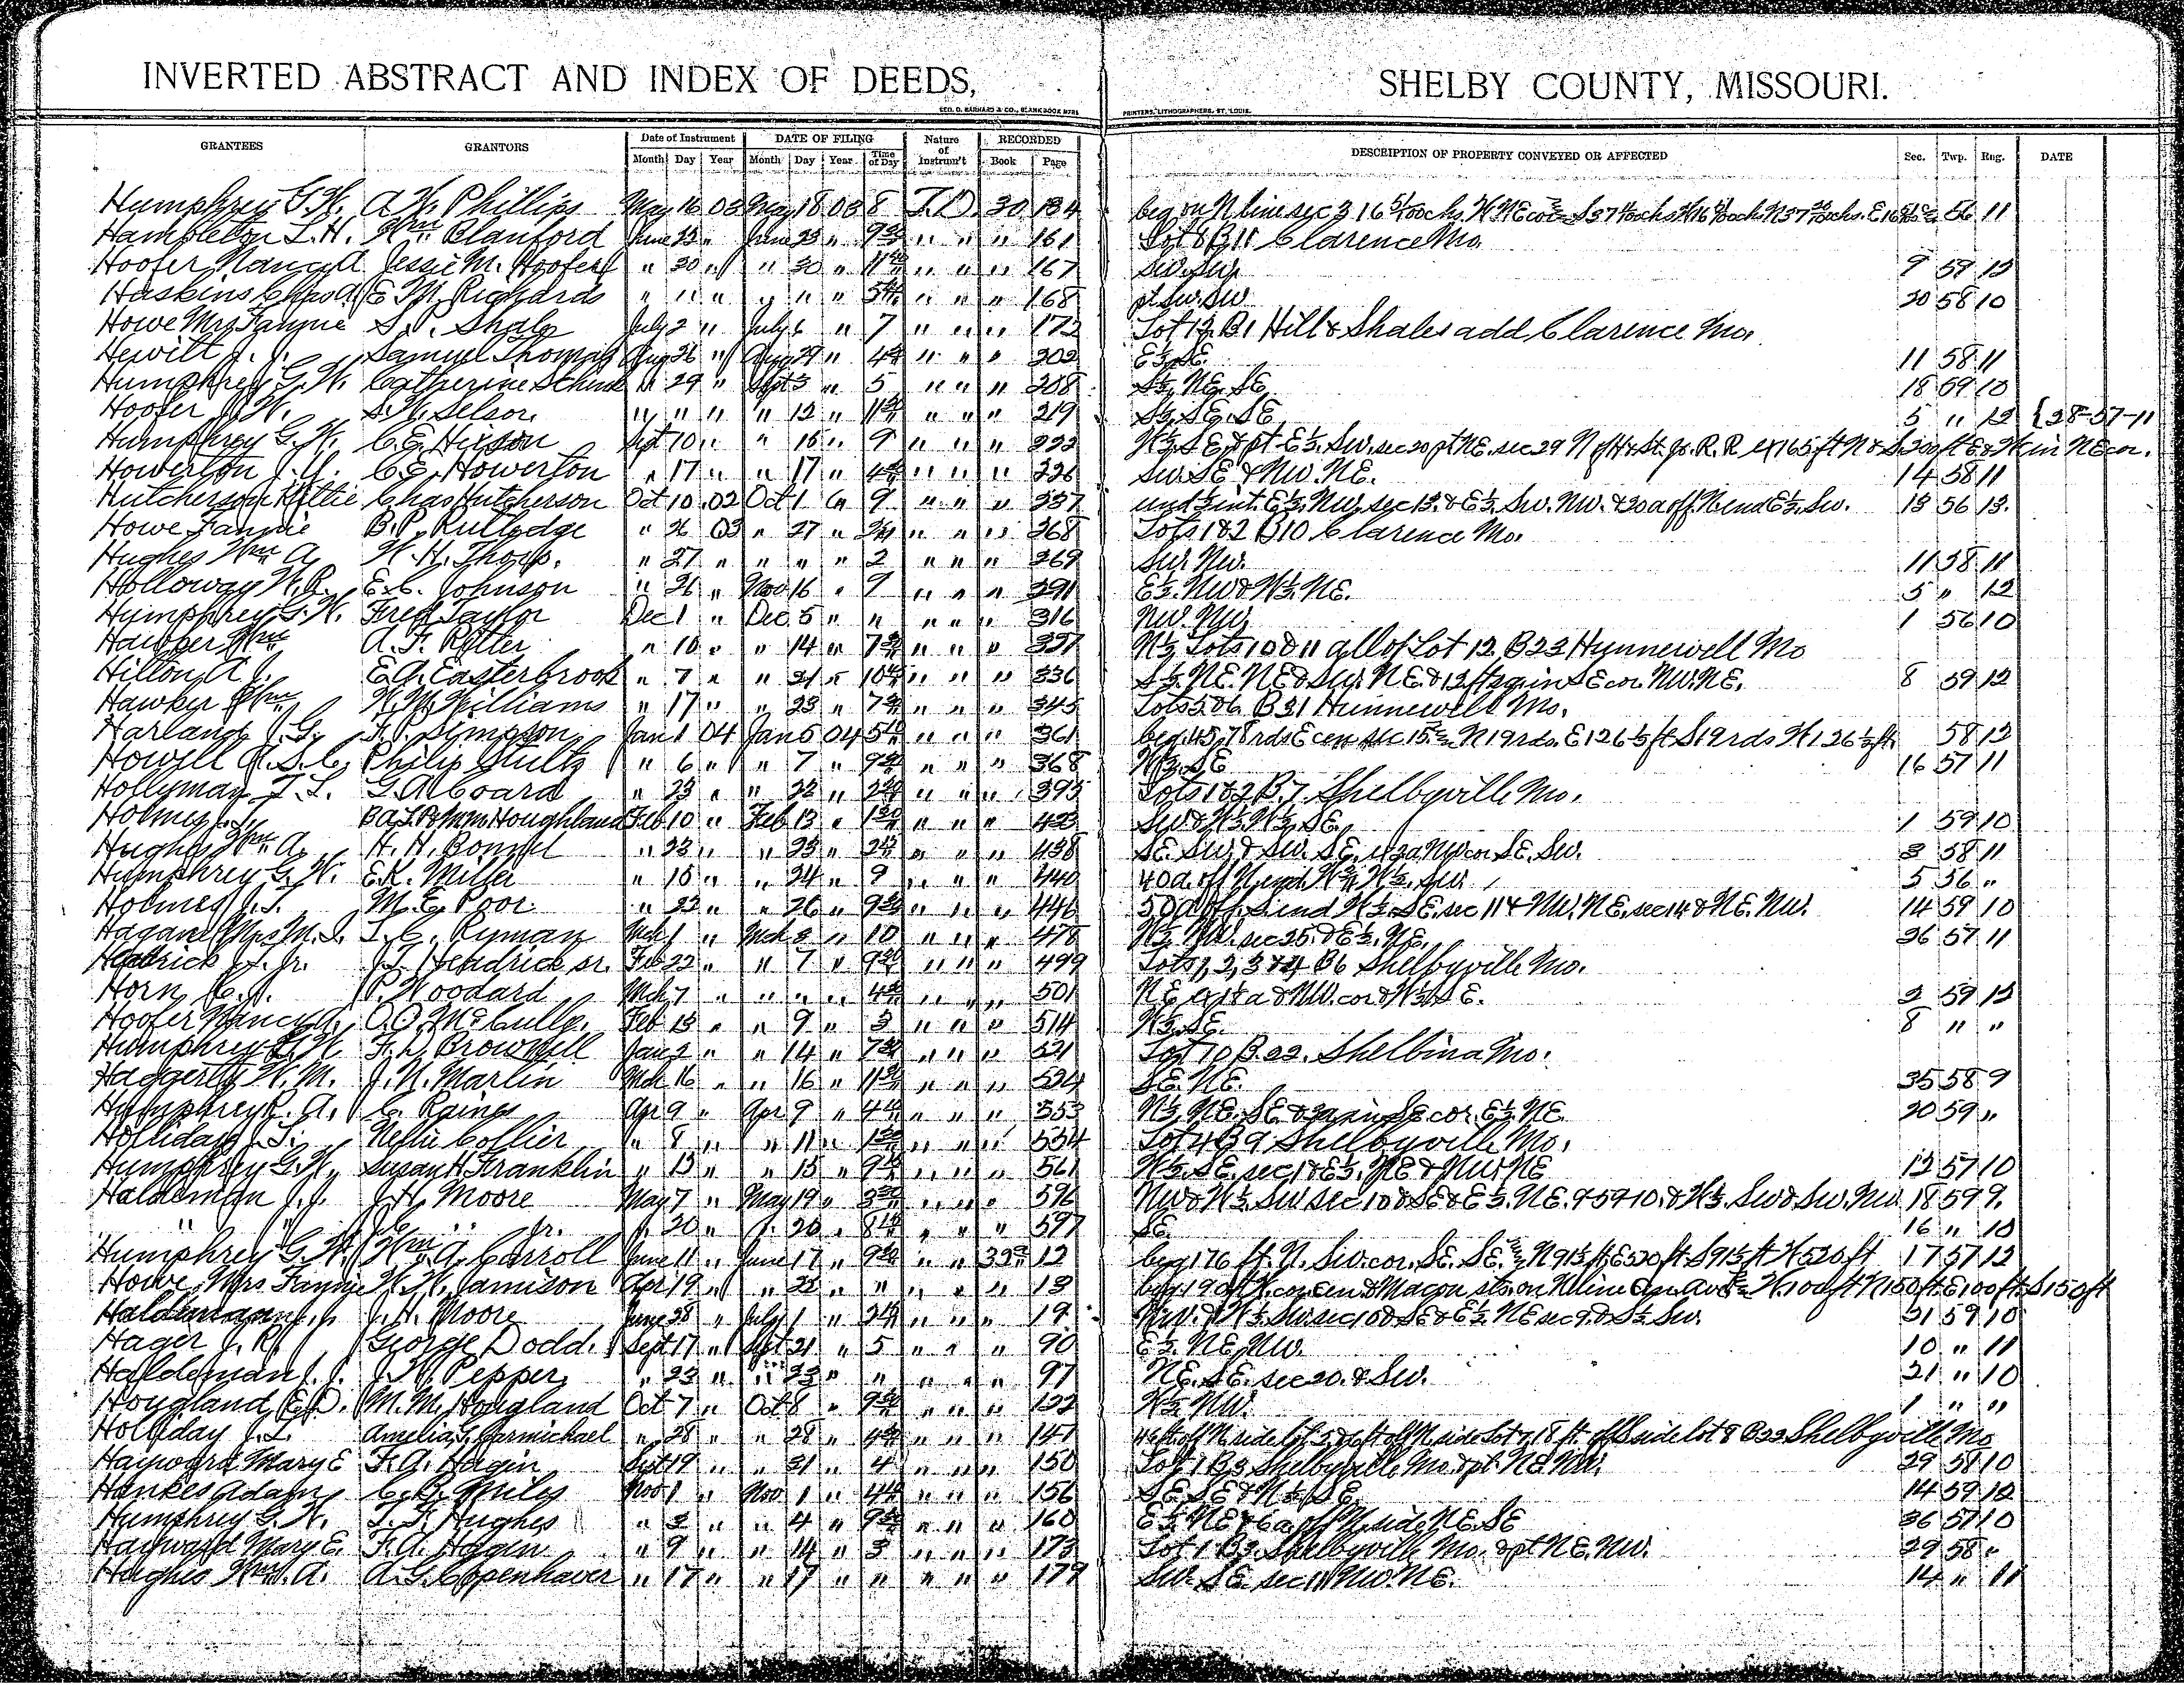 INVERTED ABSTRACT AND INDEX OF DEEDS, SHELBY COUNTY, MISSOURI.
GEO. D. BARNARD & CO., BLANK BOOK MFRS. PRINTERS, LITHOGRAPHERS, ST. LOUIS.
GRANTEES GRANTORS Date of Instrument DATE OF FILING Nature of Instrum't RECORDED DESCRIPTION OF PROPERTY CONVEYED OR AFFECTED Sec. Twp. Rng. DATE
Month Day Year Month Day Year Time of Day Book Page
Humphrey G.W. A.W. Phillips May 16 03 May 18 03 8 T.D. 30 134 beg on N line sec 3 11
Hampleton L.H. Wm Blanford June 23 " June 23 " 9 " " " 161 Lot 8 B11 Clarence Mo.
Hoofer Nancy A Jessie M. Hoofer " 30 " " 30 " " " " 167 Sw. Sw. 9 59 12
Haskins Chas A E.M. Richards " " " " " " " " " 168 pt Sw. Sw 20 58 10
Howe Mrs Fannie S.P. Shale July 2 " July 6 " 7 " " " 172 Lot 12 B1 Hill & Shales add Clarence Mo.
Hewitt J.J. Samuel Thomas Aug 26 " Aug 29 " " " " 202 E½ SE. 11 58 11
Humphrey G.W. Catherine " 29 " Sept 3 " 5 " " " 208 S½ NE. SE 18 59 10
Hoofer J.W. S.W. Selsor. " " " " 12 " " " " 219 S½ SE. SE 5 " 12 {28-57-11
Humphrey G.W. C.E. Hixson Sept 10 " " 15 " 9 " " " 222 W½ SE & pt E½ Sw. sec 20 pt NE. sec 29 N of H & St. Jo. R.R ex 165 ft N & S 200 ft E & W in NE cor.
Howerton J.Y. C.E. Howerton " 17 " " 17 " " " " 226 Sw. SE & Nw. NE. 14 58 11
Hutcherson Kittie Chas Hutcherson Oct 10 02 Oct 1 9 " " " 237 und ½ int. E½ Nw. sec 13 & E½ Sw. Nw. & 30a off N. end E½ Sw. 13 56 12.
Howe Fannie B.P. Rutledge " 26 03 " 27 " " " " 268 Lots 1 & 2 B10 Clarence Mo.
Hughes Wm A. W.H. Thorp. " 27 " " " " 2 " " " 269 Sw. Nw. 11 58 11
Holloway W.R. E.C. Johnson " 26 " Nov 16 " 9 " " " 291 E½ Nw & W½ NE. 5 " 12
Humphrey G.W. Fred Taylor Dec 1 " Dec. 5 " " " " " 316 Nw. Nw. 1 56 10
Hawker Wm A.F. Potter " 10 " " 14 " " " " N½ Lots 10 & 11 all of Lot 12, B23 Hunnewell Mo
Hilton A.J. E.A. Easterbrook " 7 " " 21 " " " " 336 S½ NE. NE & Sw. NE. & 12 ft sq in SE cor Nw. NE. 8 59 12
Hawker Wm W.M. Williams " 17 " " 23 " " " " 345 Lots 5 & 6 B31 Hunnewell Mo.
Harland J.G. F.P. Simpson Jan 1 04 Jan 5 04 " " " 361 beg 45.78 rds E cen sec 15 N 19 rds. E 126½ ft S 19 rds W 126½ ft. 58 12
Howell A.S.C. Philip Stultz " 6 " " 7 " " " " 368 W½ SE 16 57 11
Hollyman T.L. G.A. Coard " 23 " " 22 " " " " 395 Lots 1 & 2 B.7. Shelbyville Mo.
Holmes J.T. Houghland Feb 10 " Feb 13 " " " " 423 Sw & W½ W½ SE. 1 59 10
Hughes Wm A. H.H. Bonnel " 23 " " 23 " " " " 438 SE. Sw. & Sw. SE. ex 3a Nw cor SE. Sw. 3 58 11
Humphrey G.W. E.K. Miller " 18 " " 24 " 9 " " " 440 40a. off N. end Sw. 5 56 "
Holmes J.T. M.E. Poor " 23 " " 26 " " " " 446 50a off S. end W½ SE. sec 11 & Nw. NE. sec 14 & NE. Nw. 14 59 10
Hagan Mrs M.J. J.C. Ryman Mch 1 " Mch 3 " 10 " " " 478 W½ Nw. sec 25. & E½. NE. 26 57 11
Hedrick J.T. Jr. J.T. Hendrick sr. Feb 22 " " 7 " " " " 499 Lots 1, 2, 3 & 4 B6 Shelbyville Mo.
Horn C.J. P. Woodard Mch 7 " " " " " " " 501 NE ex 1½ a Nw. cor & W½ SE. 2 59 12
Hoofer Nancy A. O.O. McCully. Feb 13 " " 9 " 3 " " " 514 W½ SE. 8 " "
Humphrey G.W. F.D. Brownell Jan 2 " " 14 " " " " 521 Lot 10 B.22. Shelbina Mo.
Haggerty W.M. J.N. Marlin Mch 16 " " 16 " " " " 524 SE. NE. 35 58 9
Humphrey R.A. C. Raings Apr 9 " Apr 9 " " " " 553 N½ NE. SE & in Se cor. E½ NE 20 59 "
Holliday J.T. Nellie Collier " 8 " " 11 " " " " 554 Lot 4 B9 Shelbyville Mo.
Humphrey G.W. Susan H Franklin " 13 " " 15 " " " " 561 W½ SE. sec 1 & E½. NE & Nw. NE 12 57 10
Haldeman J.J. J.H. Moore May 7 " May 19 " " " " 596 Nw & W½ Sw sec 10 & SE & E½ NE. 9-59-10. & W½ Sw & Sw. Nw. 18 59 9.
" " " " Jr. " 20 " " 20 " " " " 597 SE. 16 " 10
Humphrey G.W. Wm A. Carroll June 11 " June 17 " " " 32 12 beg 176 ft. N. Sw. cor. SE. SE. N 91½ ft E 520 ft S 91½ ft W 520 ft 17 57 12
Howe Mrs Fannie W.H. Jamison Apr 19 " " 22 " " " " " 13 beg 190 ft W. cor cen & Macon sts. on N line W. 100 ft N 150 ft. E 100 ft. S 150 ft
Haldeman J.J. J.H. Moore June 28 " July 1 " " " " 19 Nw. & W½ Sw. sec 10 & SE & E½ NE sec 9. & S½ Sw. 31 59 10
Hager J.R. George Dodd. Sept 17 " Sept 21 " 5 " " " 90 E½ NE. Nw. 10 " 11
Haldeman J.J. J.W. Pepper " 23 " " 23 " " " " " 97 NE. SE. sec 20. & Sw. 21 " 10
Hougland E.D. M.M. Hougland Oct 7 " Oct 8 " " " " 122 W½ Nw. 1 " "
Holliday J.L. Amelia S. Carmichael " 28 " " 28 " " " " 147 off N side lot 18 ft. off S side lot 8 B22 Shelbyville Mo
Hayward Mary E F.A. Hagin Sept 19 " " 31 " 4 " " " 150 Lot 1 B3 Shelbyville Mo. & pt. NE Nw. 29 58 10
Hankes Adam C.B. Miles Nov 1 " Nov 1 " " " " 156 SE SE & N½ SE 14 59 12
Humphrey G.W. T.F. Hughes " 2 " " 4 " " " " 160 E½ NE & 6a. off N. side NE. SE 36 57 10
Hayward Mary E. F.A. Hagin " 9 " " 14 " 3 " " " 173 Lot 1 B3. Shelbyville Mo. & pt NE. Nw. 29 58 "
Hughes Wm. A. A.G. Coppenhaver " 17 " " 17 " " " " " 179 Sw. SE. sec 11 Nw. NE. 14 " 11